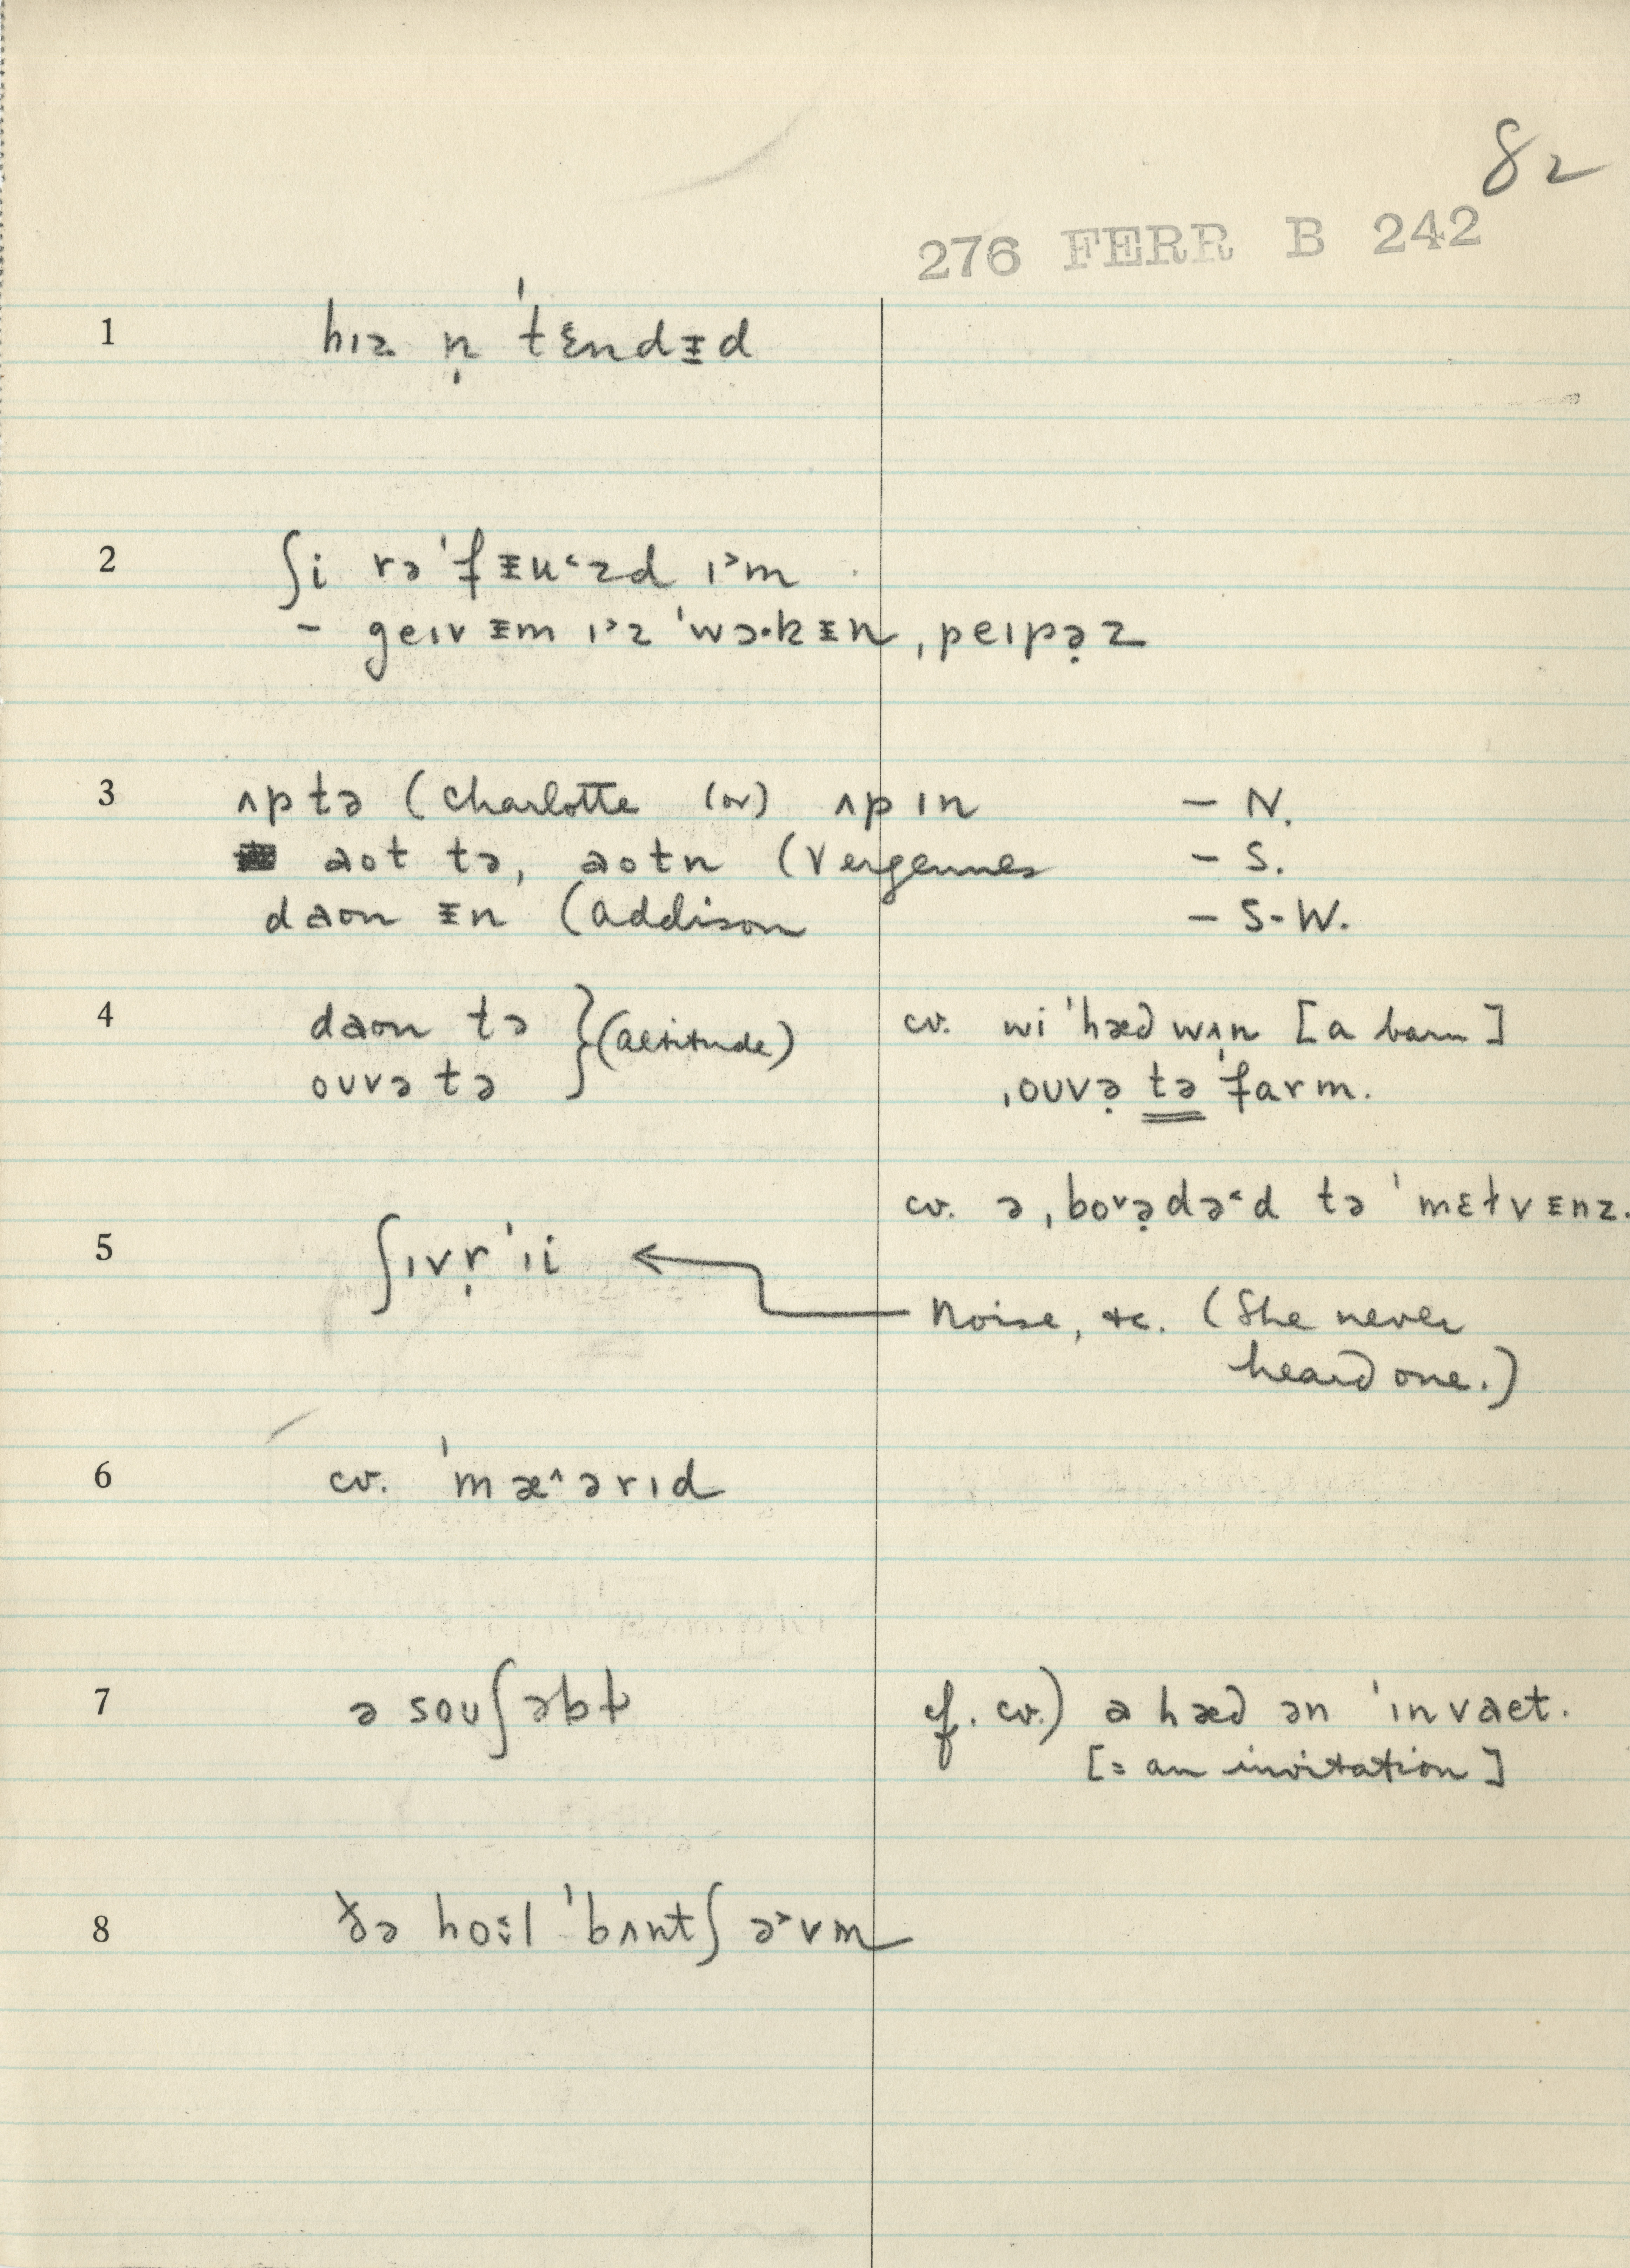 82
276 FERR B 242
1 hɪz n̩ ˈtɛndᵻd
2 ʃi rəˈfᵻu˂zd ɪ˃m
– geɪv ᵻm ɪ˃z ˈwɔ·kᵻn ˌpeɪpə̣z
3 ʌp tə (Charlotte (or) ʌp ɪn – N.
aot tə, aotn (Vergennes – S.
daon ᵻn (Addison – S-W.
4 daon tə } (altitude) cv. wi ˈhæd wʌn [a barn]
ouvə tə ˌouvə̣ tə ˈfarm.
cv. ə ˌboᵛə̣də˂d tə ˈmɛɫvᵻnz.
5 ʃɪvr̩ˈɪi ← Noise, &c. (She never
heard one.)
6 cv. ˈmæ^ərɪd
7 ə souʃəbɫ cf. cv.) a hæd ən ˈɪnvaet.
[= an invitation]
8 ðə hol ˈbʌntʃ ə˃vm